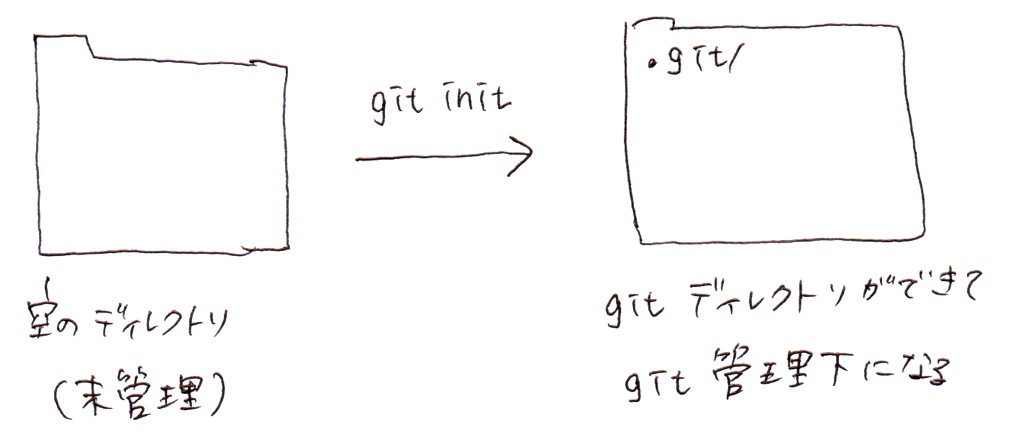 git init
.git/
空のディレクトリ
(未管理)
git ディレクトリができて
git 管理下になる